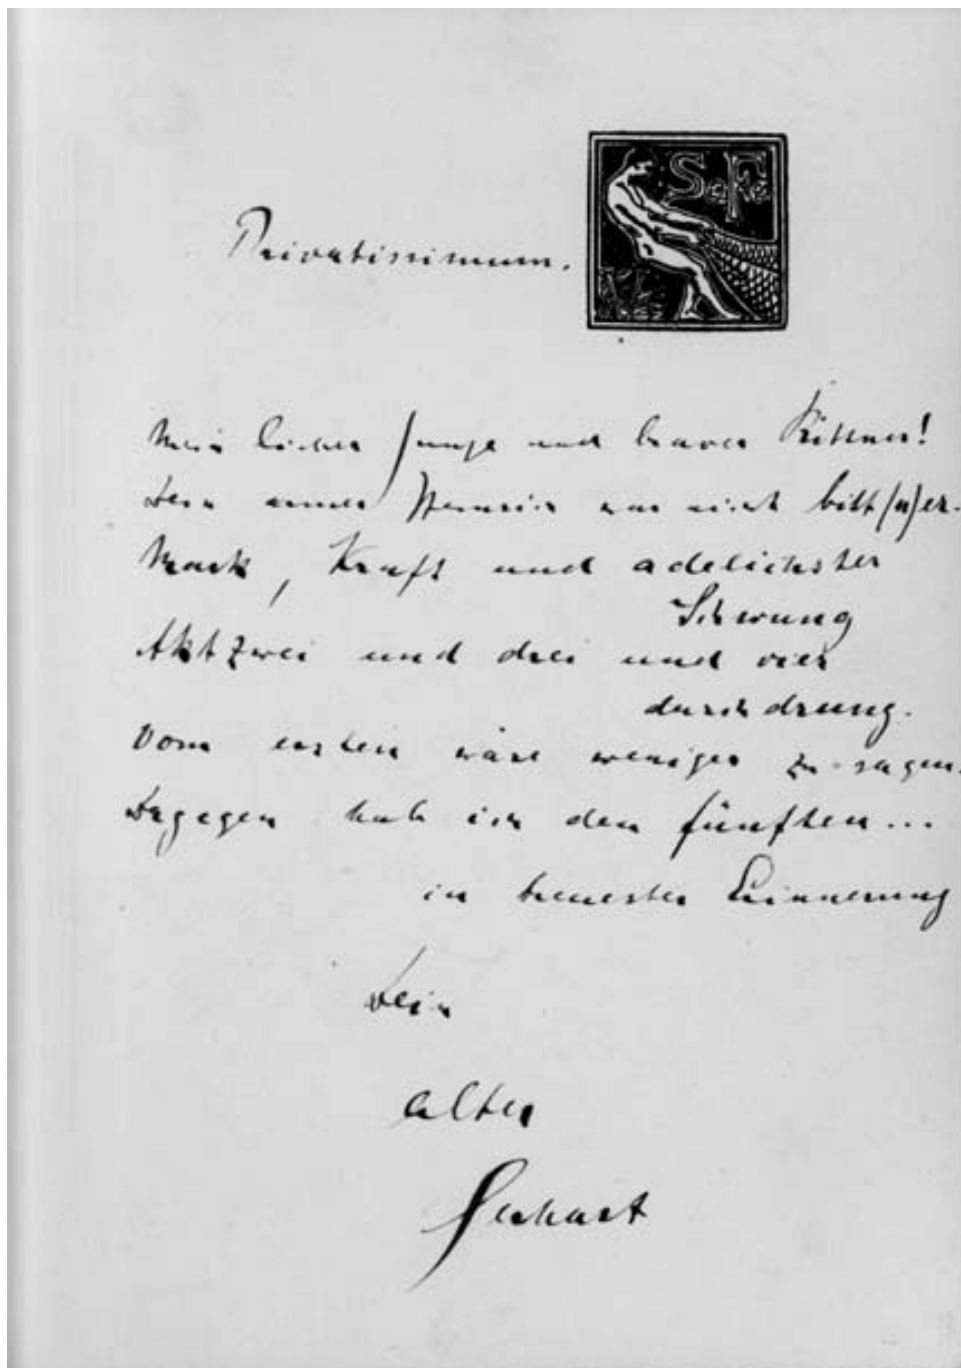 SeFe
Privatissimum.
Mein lieber Junge und braver Rittner!
Dein armer Heinrich war nicht bitt(n)er.
Mark, Kraft und adelichster
Schwung
Akt zwei und drei und vier
durchdrung.
Vom ersten wäre weniger zu sagen.
Dagegen hab ich den fünften...
in treuester Erinnerung
Dein
alter
Gerhart